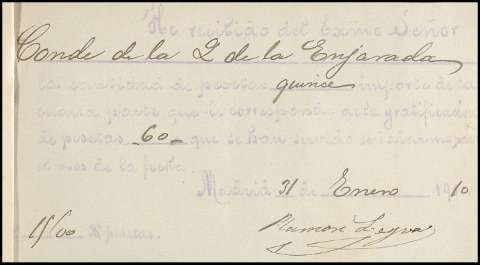 He recibido del Exmo Señor
Conde de la Q de la Enjarada
la cantidad de pesetas quince importe de la
cuarta parte que le corresponde de la gratificación
de pesetas 60 que se han servido
el mes de la fecha.
Madrid 31 de Enero 1910
15/00 pesetas.
Ramon Leyva